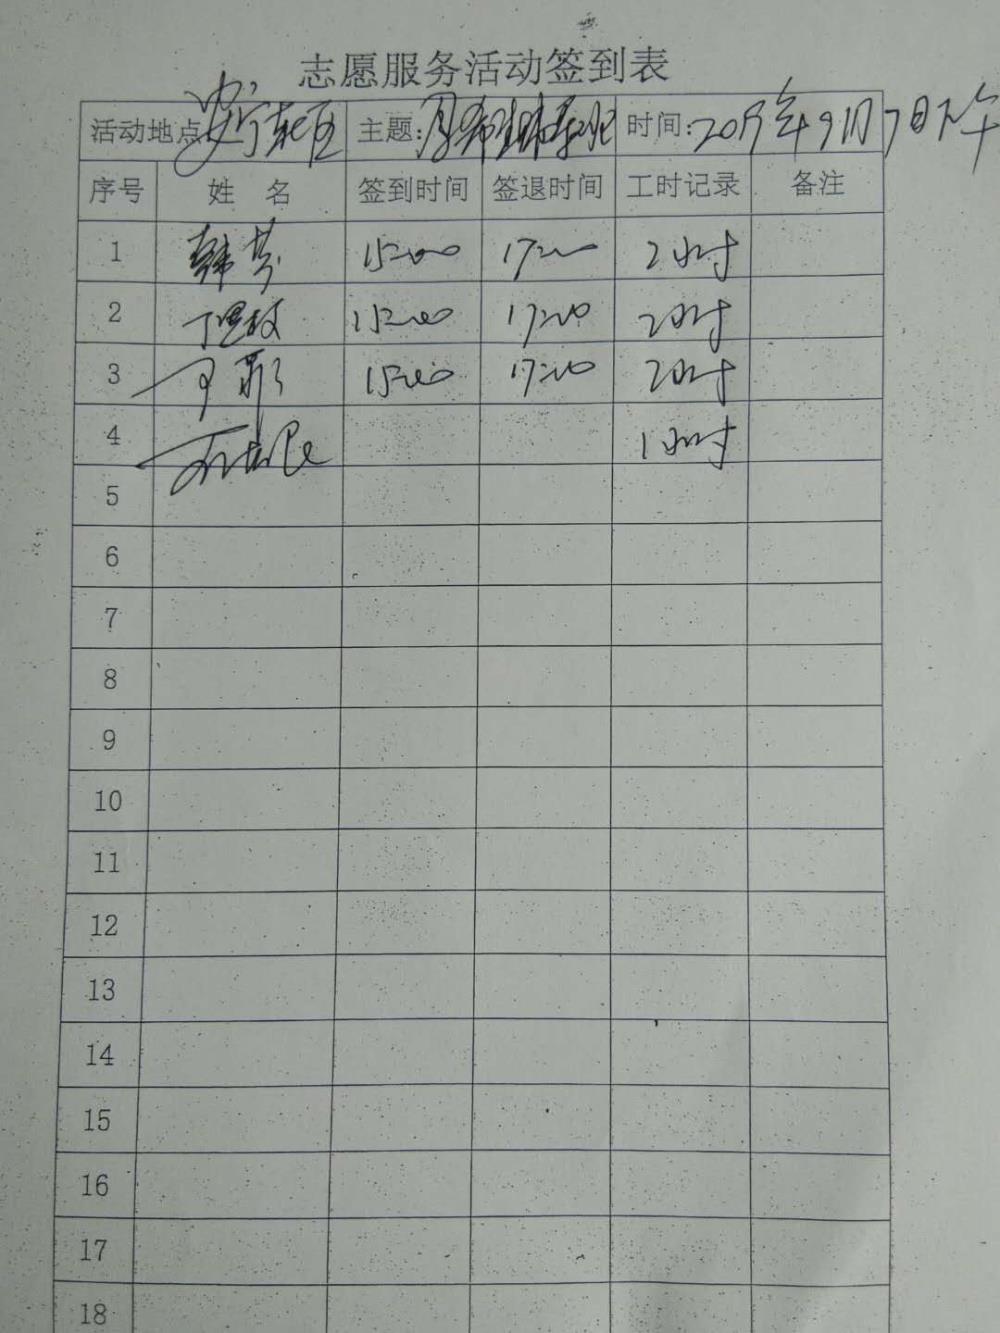 志愿服务活动签到表
活动地点 安宁东区 主题: 时间: 2019年9月7日下午
序号 姓 名 签到时间 签退时间 工时记录 备注
1 韩芬 15:00 17:00 2小时
2 15:00 17:00 2小时
3 15:00 17:00 2小时
4 1小时
5
6
7
8
9
10
11
12
13
14
15
16
17
18